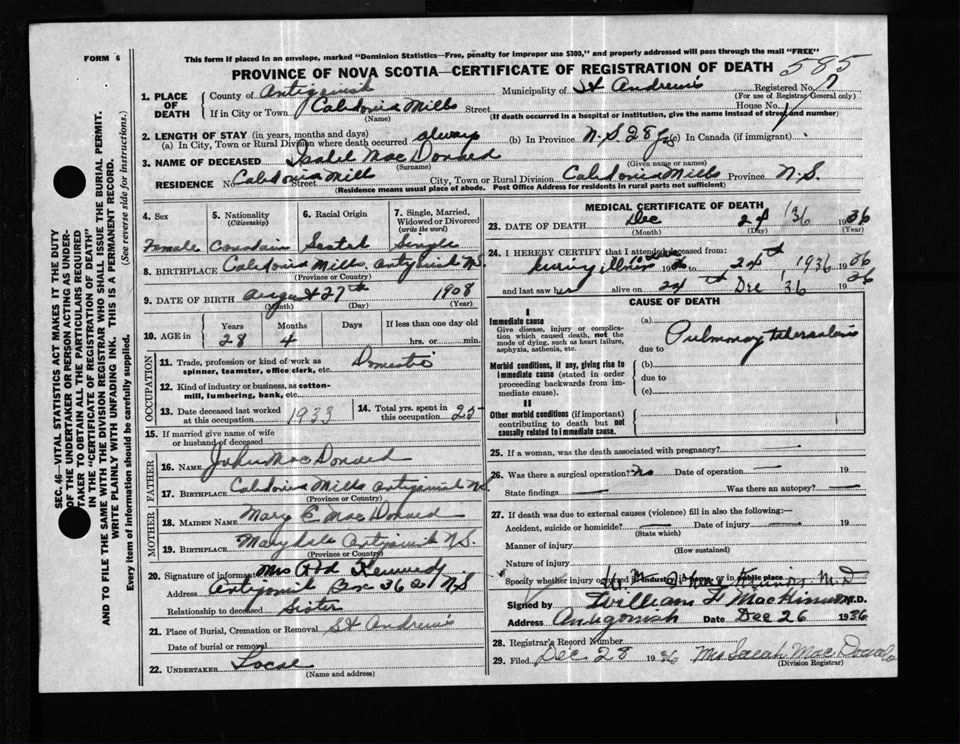 FORM 6
This form if placed in an envelope, marked "Dominion Statistics—Free, penalty for improper use $300," and properly addressed will pass through the mail "FREE"
PROVINCE OF NOVA SCOTIA—CERTIFICATE OF REGISTRATION OF DEATH
585
1. PLACE OF DEATH
County of Antigonish Municipality of St Andrew's Registered No. 7
(For use of Registrar General only)
If in City or Town Caledonia Mills Street House No.
(Name) (If death occurred in a hospital or institution, give the name instead of street and number)
2. LENGTH OF STAY (in years, months and days)
(a) In City, Town or Rural Division where death occurred always (b) In Province N.S 28 yrs (c) In Canada (if immigrant)
3. NAME OF DECEASED Isabel MacDonald
(Surname) (Given name or names)
RESIDENCE No. Caledonia Mills Street City, Town or Rural Division Caledonia Mills Province N.S.
(Residence means usual place of abode. Post Office Address for residents in rural parts not sufficient)
4. Sex 5. Nationality (Citizenship) 6. Racial Origin 7. Single, Married, Widowed or Divorced (write the word)
Female Canadian Scotch Single
8. BIRTHPLACE Caledonia Mills, Antigonish N.S.
(Province or Country)
9. DATE OF BIRTH August 27th 1908
(Month) (Day) (Year)
10. AGE in Years Months Days If less than one day old
28 4 hrs. or min.
OCCUPATION
11. Trade, profession or kind of work as spinner, teamster, office clerk, etc. Domestic
12. Kind of industry or business, as cotton-mill, lumbering, bank, etc.
13. Date deceased last worked at this occupation 1933
14. Total yrs. spent in this occupation 25
15. If married give name of wife or husband of deceased
FATHER
16. NAME John MacDonald
17. BIRTHPLACE Caledonia Mills Antigonish N.S.
(Province or Country)
MOTHER
18. MAIDEN NAME Mary C MacDonald
19. BIRTHPLACE Marydale Antigonish N.S.
(Province or Country)
20. Signature of informant Mrs Rod Kennedy
Address Antigonish Box 362 N.S
Relationship to deceased Sister
21. Place of Burial, Cremation or Removal St Andrew's
Date of burial or removal
22. UNDERTAKER Local
(Name and address)
MEDICAL CERTIFICATE OF DEATH
23. DATE OF DEATH Dec 24 '36 1936
(Month) (Day) (Year)
24. I HEREBY CERTIFY that I attended deceased from:
24th 1936 1936
and last saw her alive on 24th Dec '36 1936
CAUSE OF DEATH
I
Immediate cause
Give disease, injury or complication which caused death, not the mode of dying, such as heart failure, asphyxia, asthenia, etc.
(a) Pulmonary tuberculosis
due to
Morbid conditions, if any, giving rise to immediate cause (stated in order proceeding backwards from immediate cause).
(b)
due to
(c)
II
Other morbid conditions (if important) contributing to death but not causally related to immediate cause.
25. If a woman, was the death associated with pregnancy?
26. Was there a surgical operation? No Date of operation 19
State findings Was there an autopsy?
27. If death was due to external causes (violence) fill in also the following:—
Accident, suicide or homicide? Date of injury 19
(State which)
Manner of injury
(How sustained)
Nature of injury
Specify whether injury occurred in industry, in home, or in public place
M.D
Signed by William F MacKinnon M.D.
Address Antigonish Date Dec 26 1936
28. Registrar's Record Number
29. Filed Dec 28 1936 Mrs Sarah MacDonald
(Division Registrar)
SEC. 46—VITAL STATISTICS ACT MAKES IT THE DUTY
OF THE UNDERTAKER OR PERSON ACTING AS UNDER-
TAKER TO OBTAIN ALL THE PARTICULARS REQUIRED
IN THE "CERTIFICATE OF REGISTRATION OF DEATH"
AND TO FILE THE SAME WITH THE DIVISION REGISTRAR WHO SHALL ISSUE THE BURIAL PERMIT.
WRITE PLAINLY WITH UNFADING INK. THIS IS A PERMANENT RECORD.
Every item of information should be carefully supplied. (See reverse side for instructions.)